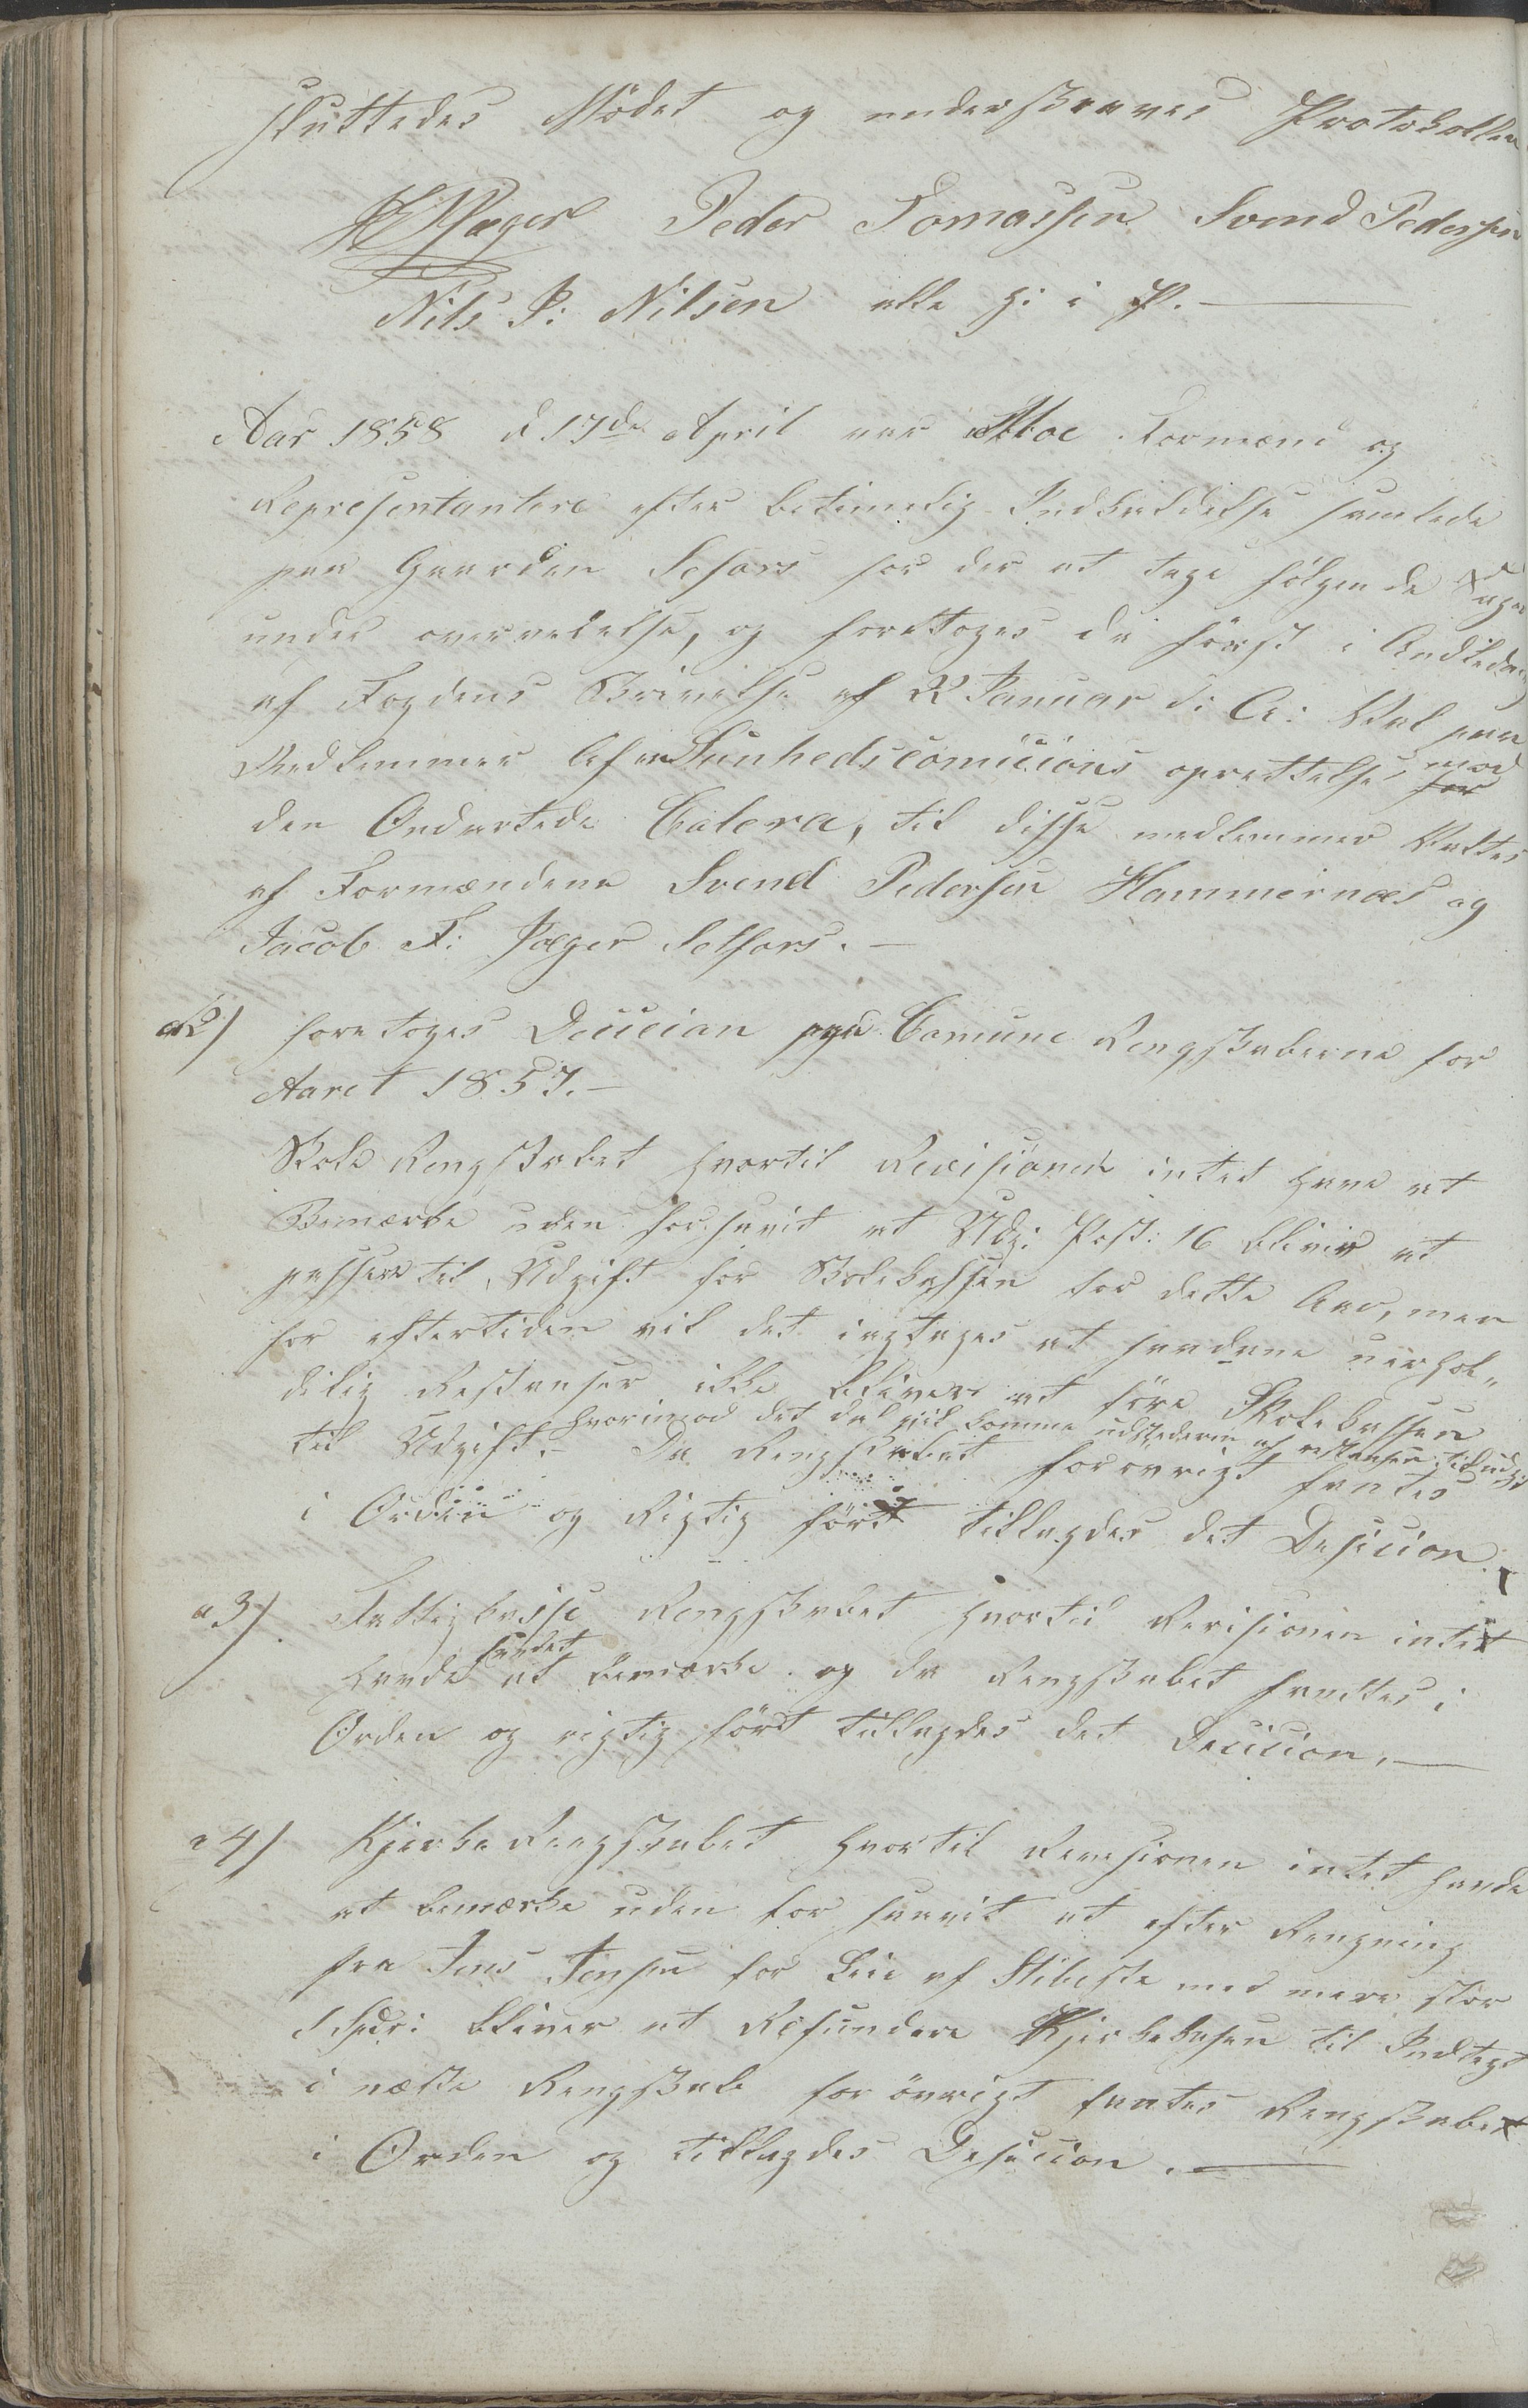 sluttedes Mödet og underskreves Protokollen
Jæger Peder Tomassen Svend Pedersen
Nils P: Nilsen alle H: i P.
Aar 1858 d 17de April var Moe Formænd og
Representantere efter betimelig Indkaldelse samlede
paa Gaarden Selfors for der at tage fölgende Sager
under overveielse, og foretoges da först i Andledning
af Fogdens Skrivelse af 22 Januar d: A: Valg paa
Medlemmer af en Sunhedscomicions oprettelse for mod
den Ondartede Colera, til disse medlemmer Valtes
af Formændene Svend Pedersen Hammernæs og
Jacob F: Jæger Selfors. -
a 2) foretoges Decicion paa Comune Rengskaberne for
Aaret 1857. -
Skole Rengskabet hvortil Revisionen intet have at
Bemærke uden forsaavit at Udg: Post: 16 bliver at
passere til Udgift for Skolekassen for dette Aar, men
for eftertiden vil det iagtages at saadane uerhol„
delig Restanser ikke bliver at före Skolekassen
hvorimod det dal vil komme udstederen af restansen til udgift
til Udgift. - Da Rengskabet forovrigt fantes
i Orden og Rigtig fört tillagdes det Desicion.
a 3) Fattigkasse Rengskabet hvortil Revisionen intet
havde fundet at Bemærke og da Rengskabet fantes i
Orden og rigtig fört tillagdes det Decicion. -
a 4) Kjerke Rengskabet hvortil Revesionen intet havde
at bemærke uden for saavit at efter Rengning
fra Jens Jensen for Leie af med mere stor
1 Spdr: bliver at Refundere Kjerkekasen til Indtegt
i næste Rengskab for övrigt fantes Rengskabet
i Orden og tillagdes Desicion. -